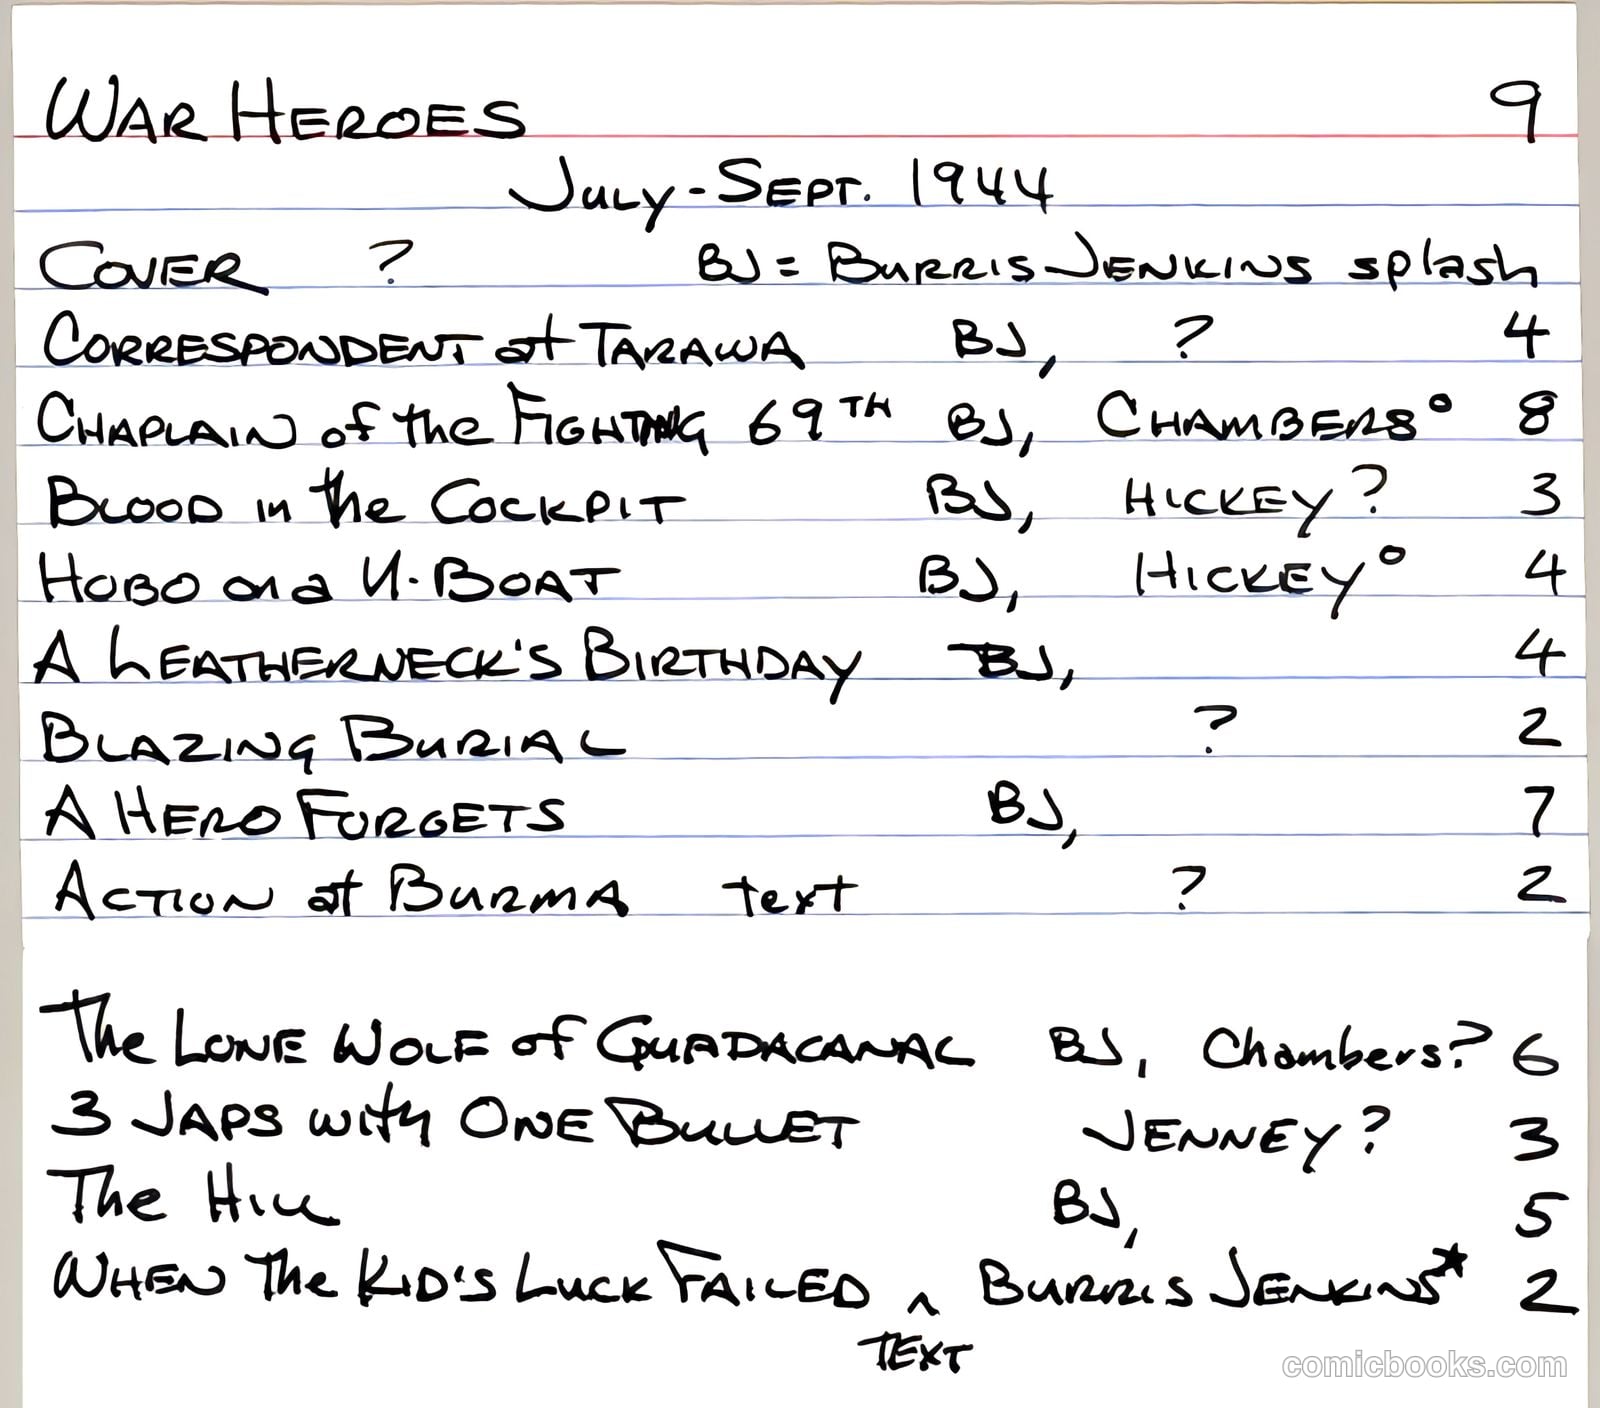 WAR HEROES 9
JULY-SEPT. 1944
COVER ? BJ = BURRIS JENKINS splash
CORRESPONDENT at TARAWA BJ, ? 4
CHAPLAIN of the FIGHTING 69TH BJ, CHAMBERS° 8
BLOOD in the COCKPIT BJ, HICKEY? 3
HOBO on a U-BOAT BJ, HICKEY° 4
A LEATHERNECK'S BIRTHDAY BJ, 4
BLAZING BURIAL ? 2
A HERO FORGETS BJ, 7
ACTION at BURMA text ? 2
The LONE WOLF of GUADACANAL BJ, Chambers? 6
3 JAPS with ONE BULLET JENNEY? 3
The HILL BJ, 5
WHEN The KID'S LUCK FAILED ^ BURRIS JENKINS* 2
TEXT
comicbooks.com